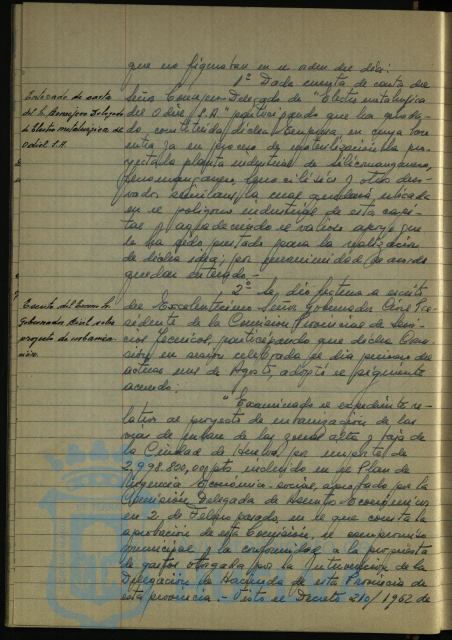 que no figuraban en el orden del día:
1º Dada cuenta de carta del
Enterado de carta
del Sr. Consejero Delegado
de Electro metalurgica de
Odiel S.A.
Señor Consejero-Delegado de "Electro metalurgica
del Odiel S.A." participando que ha quedado
constituida dicha Empresa, en cuya
entra ya en proceso de materialización la pro-
yectada planta industrial de silicomanganeso,
ferromanganeso, ferrosilicio y otros deri-
vados similares, la cual quedará ubicada
en el polígono industrial de esta capi-
tal y agradeciendo el valioso apoyo que
le ha sido prestado para la realización
de dicha idea; por unanimidad se acordó
quedar enterado.-
2º Se dió lectura a escrito
Escrito del Excmo. Sr.
Gobernador Civil sobre
proyecto de urbaniza-
ción.
del Excelentísimo Señor Gobernador Civil Pre-
sidente de la Comisión Provincial de Servi-
cios Técnicos, participando que dicha Comi-
sión en sesión celebrada el día primero del
actual mes de Agosto, adoptó el siguiente
acuerdo:
"Examinado el expediente re-
lativo al proyecto de urbanización de las
de enlace de las zonas alta y baja de
la Ciudad de Huelva, por importe de
2.998.800,00 pts. incluido en el Plan de
Urgencia Económico-social, aprobado por la
Comisión Delegada de Asuntos Económicos
en 2 de Febrero pasado, en el que consta la
aprobación de esta Comisión, el compromiso
municipal y la conformidad a la propuesta
de gastos otorgada por la Intervención de la
Delegación de Hacienda de esta Provincia de
esta provincia.- Visto el Decreto 210/1962 de